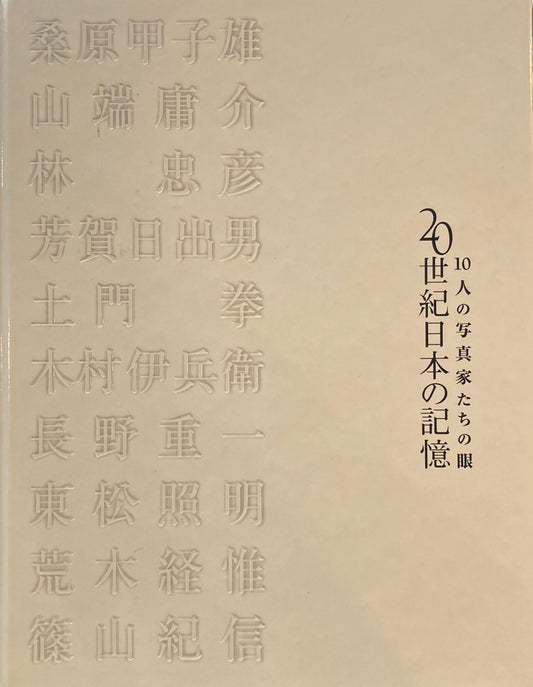 桑原甲子雄
山端庸介
林忠彦
芳賀日出男
土門拳
木村伊兵衛
長野重一
東松照明
荒木経惟
篠山紀信
10人の写真家たちの眼
20世紀日本の記憶